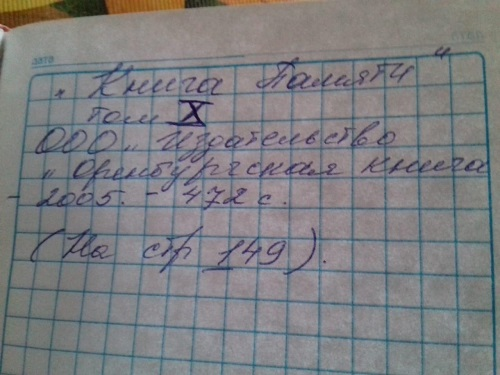 дата
„Книга Памяти"
том X
ООО „Издательство
„Оренбургская книга
- 2005. - 472 с.
(На стр 149).